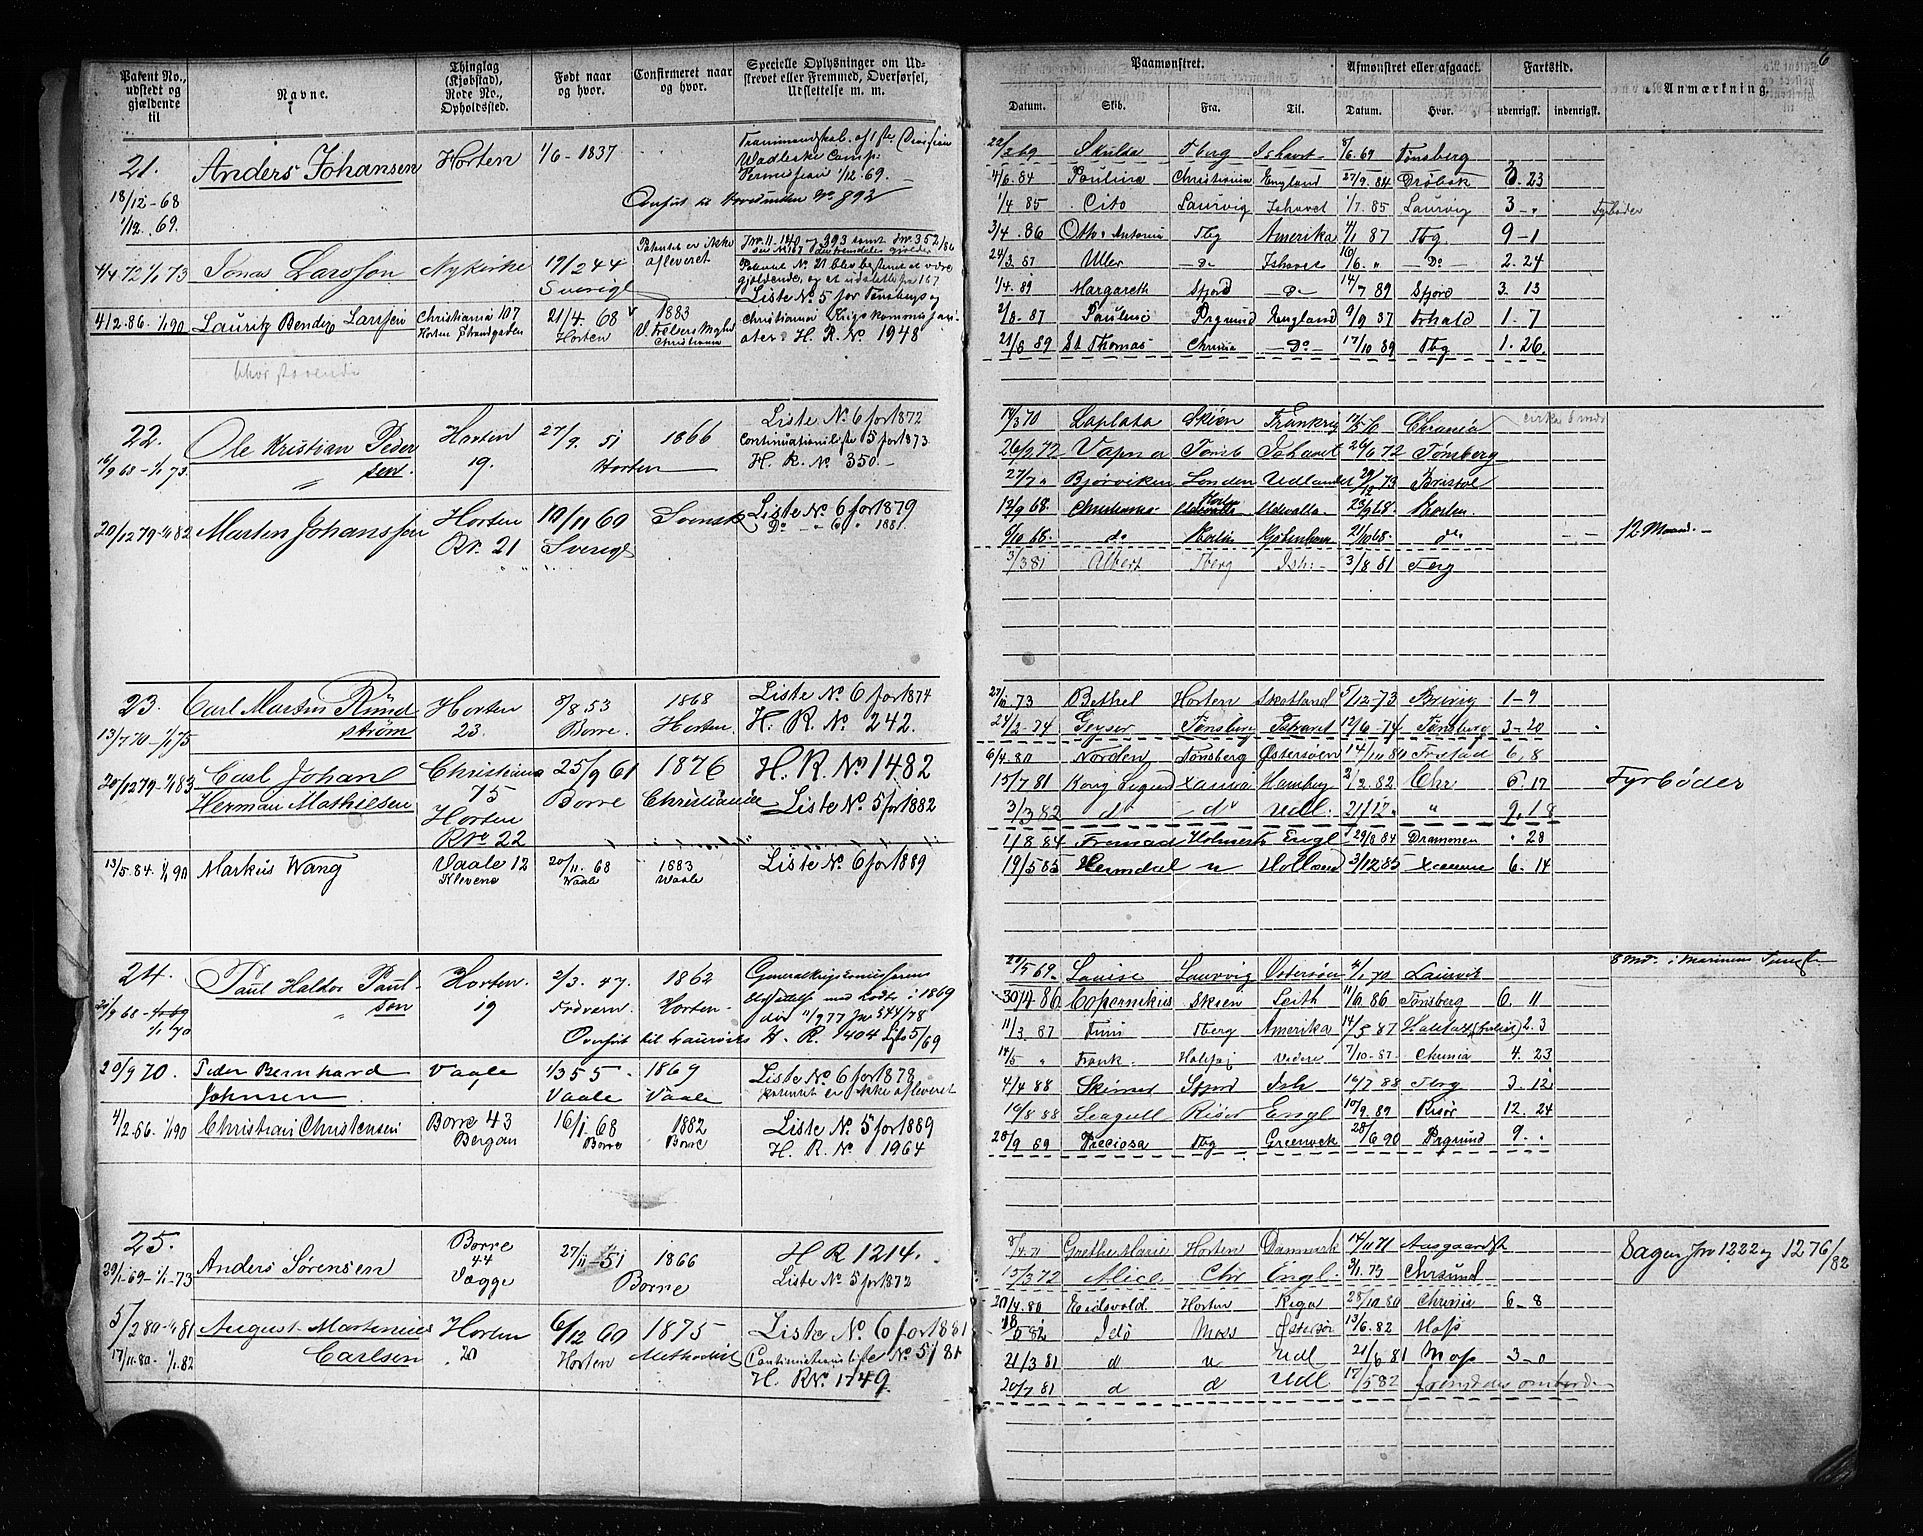 6
Patent No., udstedt og gjældende til
Navne.
Thinglag (Kjøbstad), Rode No., Opholdssted.
Født naar og hvor.
Confirmeret naar og hvor.
Specielle Oplysninger om Udskrevet eller Fremmed, Overførsel, Udslettelse m. m.
Paamønstret.
Afmønstret eller afgaaet.
Fartstid.
Anmærkning.
Datum. Skib. Fra. Til. Datum. Hvor. udenrigsk. indenrigsk.
21. Anders Johansen Horten 1/6 - 1837
18/12-68
1/12. 69.
Permission 1/12.69.
No 892
4/4 72 1/1 73 Jonas Larsson Nykirke 19/2 44 Patentet er ikke afleveret
Sverige
4/2.86. 1/1 90 Lauritz Bendix Larssen Christiania 107 21/4. 68 1883
Horten Strandgaden Horten Christiania
H. R. No 1948
22/2 69 Skulda Tberg Ishavet 8/6.69 Tønsberg
4/6. 84 Paulina Christiania England 27/9. 84 Drøbak 3. 23
1/4 85 Cito Laurvig Ishavet 1/7. 85 Laurvig 3 - " Fyrbøder
3/4. 86 Otto & Antonie Tbg Amerika 4/1 87 Tbg 9-1
24/3. 87 Uller - Do Ishavet 16/6. " - Do 2. 24
1/4. 89 Margareth Sfjord - Do - 14/7 89 Sfjord 3. 13
2/8. 87 Pauline Prgrund England 9/9 87 Frhald 1. 7
21/8 89 St Thomas Chrania - Do - 17/10 89 Tbg 1. 26.
22. Ole Kristian Pedersen Horten 27/9. 51 1866 Liste No 6 for 1872
16/9 68-1/1 73. 19. Horten Continuationsliste 5 for 1873
H. R. No 350.-
20/12 79-1/1 82 Marten Johanssen Horten 10/11 60 Svensk Liste No 6 for 1879
R No. 21 Sverige Do - " 6 " 1881
14/3 70 Laplata Skien Frankrig
26/2 72 Vapna Tønsb Ishavet 26/6 72 Tønsberg
27/7 " Bjørviken London Udlandet 29/12 73 Bristol
12/9 68. Christiania Horten Udevalla 23/9 68 Horten
9/10 68. do Horten Gøtenborg 21/10 68. do 12 Maaned.-
3/3 81 Albert Tberg Ish:- 3/8 81 Tbrg
23. Carl Martin Rundstrøm Horten 8/8. 53 1868 Liste No 6 for 1874
13/7 70-1/1 75 23. Borre. Horten. H. R. No 242.
20/12 79-1/1 83 Carl Johan Herman Mathiesen Christiania 75 25/9 61 1876 H. R. No 1482
Horten R No 22 Borre Christiania Liste No. 5 for 1882
13/5. 84. 1/1 90 Markus Wang Vaale 12 20/11. 68 1883 Liste No 6 for 1889
Klevene Vaale Vaale
23/6. 73 Bethel Horten Skotland 5/12-73 Brevig 1-9
24/2. 74 Geyser Tønsberg Ishavet 12/6. 74 Tønsberg 3-20
6/4. 80 Norden Tønsberg Østersøen 14/11 80 Frstad 6. 8
15/7 81 Kong Sigurd Xania Hamburg 2/2. 82 Chr 6. 17 Fyrbøder
3/3 82 do do Udl. 21/12 " " 9. 18
1/8 84 Fremad Holmestr Engl 29/8 84 Drammen " 28
19/5 85 Heimdal " Holland 3/12 85 6. 14
24. Paul Haldor Paulsen Horten. 2/3. 47. 1862
21/9 68-1/1 69 19 Horten.
1/1 70
Overført til Laurviks H. R. 404 Liste 5/69
20/9 70. Peder Bernhard Johnsen Vaale 1/3 55. 1869 Liste No. 6 for 1878
Vaale Vaale Patentet er ikke afleveret
4/2.86. 1/1 90 Christian Christensen Borre 43 16/1. 68 1882 Liste No 5 for 1889
Bergan Borre Borre H. R. No 1964
20/5 69. Louise Laurvig Østersøen 4/1 70 Laurvik
30/4 86 Copernikus Skien Leith 11/6 86 Tønsberg 6. 11
11/3. 87 Tberg Amerika 14/5 87 2. 3
14/5 " Frank. Halifax Videre 7/10-87 Chrania 4. 23
4/4 88 Skirner Sfjord Ish 16/7 88 Tbrg 3-12
16/8 88 Seagull Risør Engl 10/9. 89 Risør 12. 24
28/9 89 Preciosa Tbg Greenock 28/6 90 Prgrund 9. "
25. Anders Sørensen Borre 44 27/11-51 1866 H R 1214.
29/1-69-1/1-73 Vegge Borre Liste No. 5 for 1872
5/2 80-1/1 81 August Martinius Carlsen Horten 6/12 60 1875 Liste No. 6 for 1881
17/11 80.-1/1. 82 20 Horten Methodist Continuationsliste No. 5/81
H. R No. 1749
8/4. 71 Grethe Marie Horten Danmark 14/11 71 Aasgaardstr Sagen Jno 1222 og 1276/82
15/3 72 Alice Chr Engl. 2/1. 73 Chrsund
20/4. 80 Eidsvold Horten Riga 28/10 80 Chrania 6-8
Idø Moss Østersø 13/6. 82 Moss
21/3 81 d " Udl 21/6 81 Moss 3-0
20/7 81 d d Udl 17/5 82 ombord